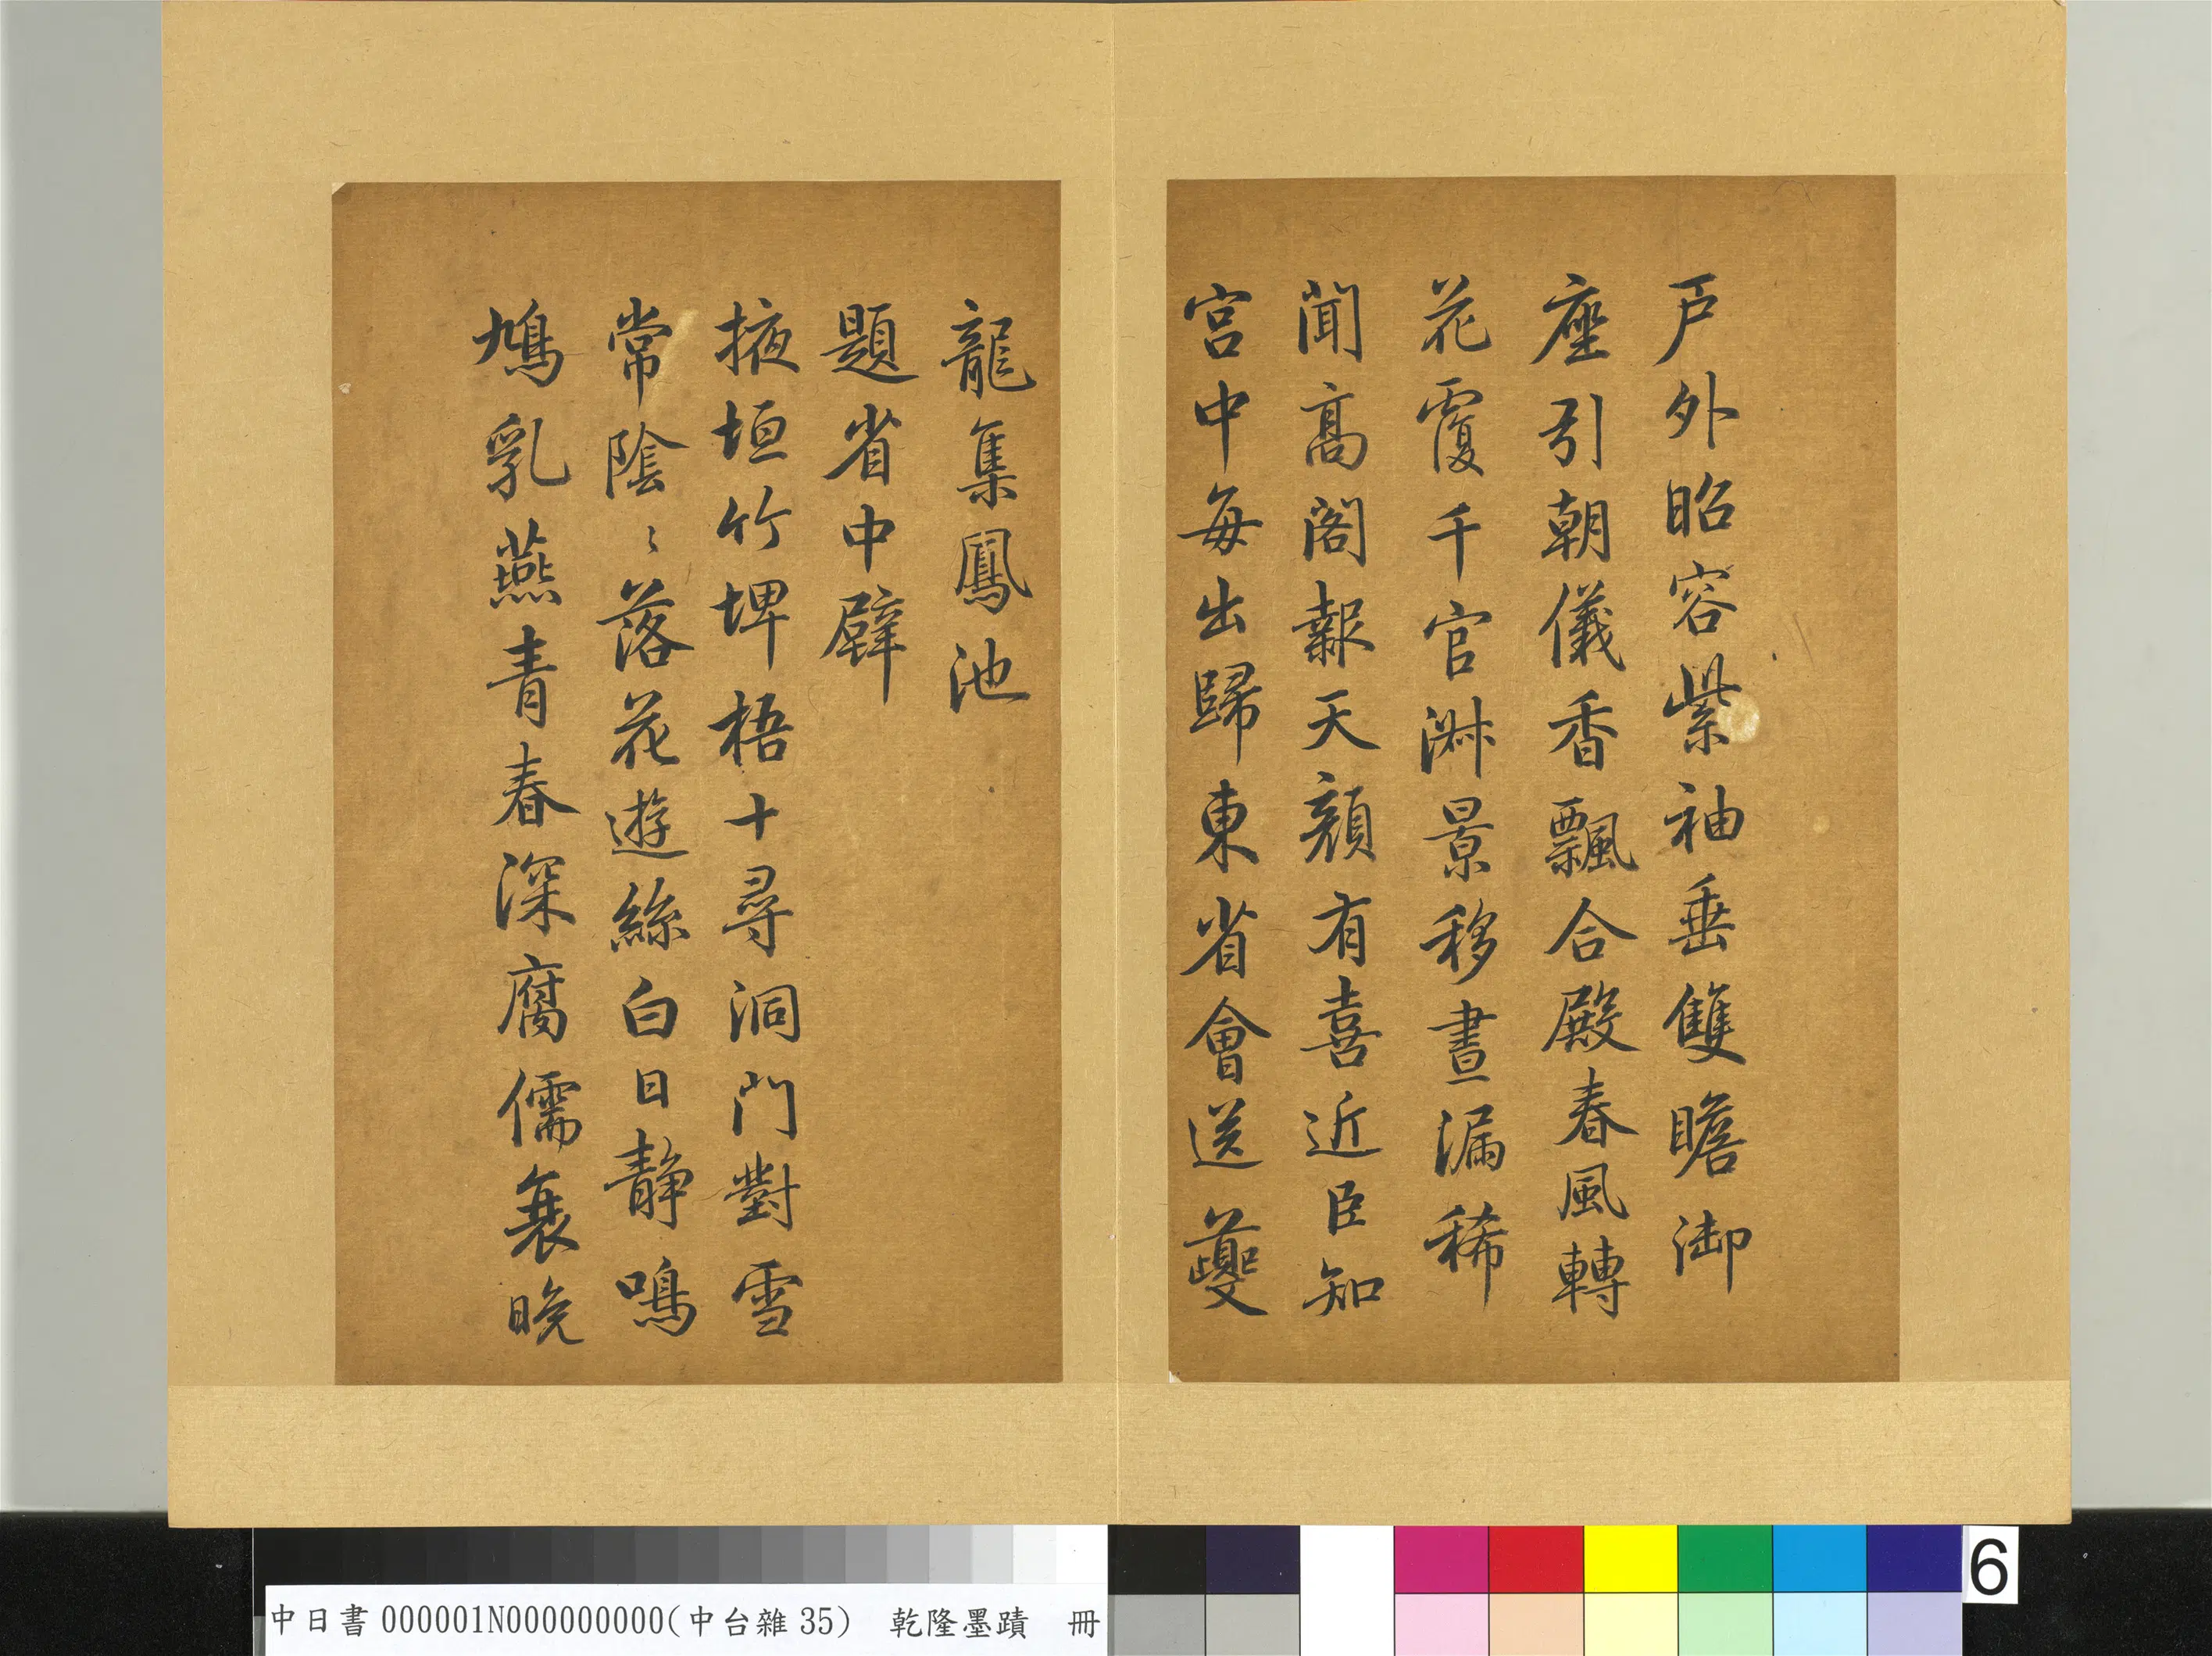 戶外昭容紫袖垂雙瞻御
座引朝儀香飄合殿春風轉
花覆千官淑景移晝漏稀
聞高閣報天顏有喜近臣知
宮中每出歸東省會送夔
龍集鳳池
題省中壁
掖垣竹埤梧十尋洞門對雪
常陰〻落花遊絲白日靜鳴
鳩乳燕青春深腐儒衰晚
中日書000001N000000000(中台雜35) 乾隆墨蹟 冊
6